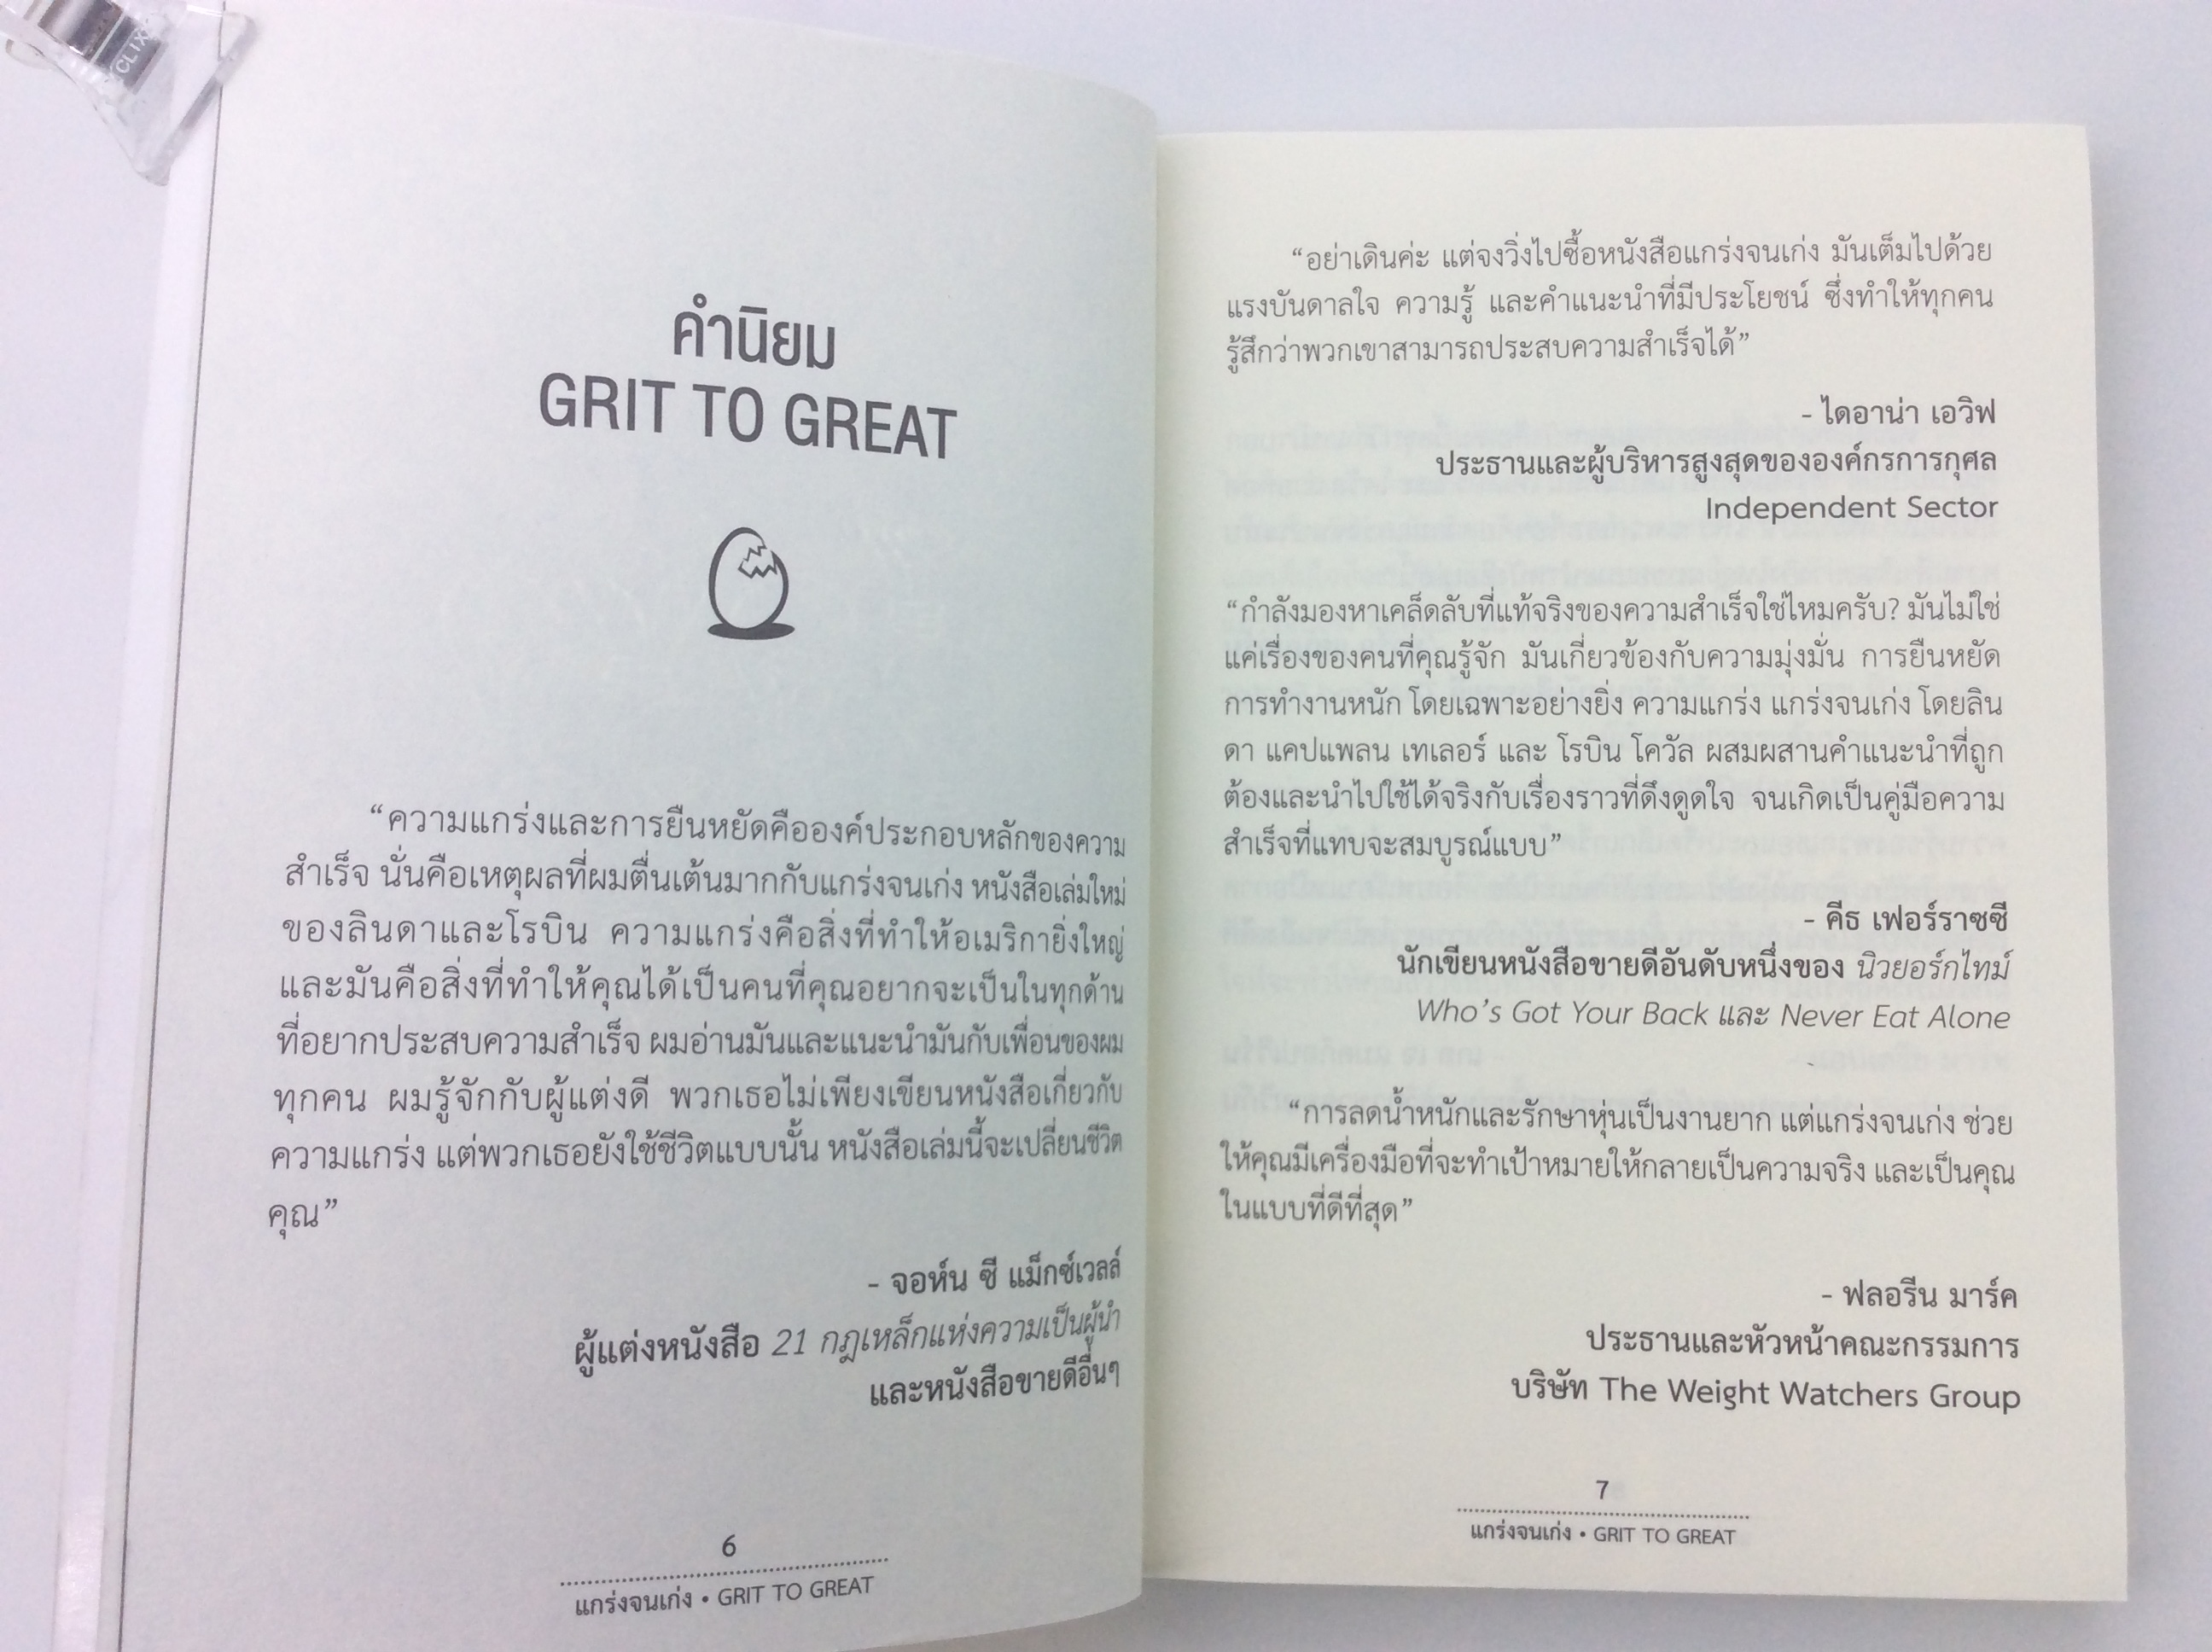 CLIX
คำนิยม
GRIT TO GREAT
“ความแกร่งและการยืนหยัดคือองค์ประกอบหลักของความ
สำเร็จ นั่นคือเหตุผลที่ผมตื่นเต้นมากกับแกร่งจนเก่ง หนังสือเล่มใหม่
ของลินดาและโรบิน ความแกร่งคือสิ่งที่ทำให้อเมริกายิ่งใหญ่
และมันคือสิ่งที่ทำให้คุณได้เป็นคนที่คุณอยากจะเป็นในทุกด้าน
ที่อยากประสบความสำเร็จ ผมอ่านมันและแนะนำมันกับเพื่อนของผม
ทุกคน ผมรู้จักกับผู้แต่งดี พวกเธอไม่เพียงเขียนหนังสือเกี่ยวกับ
ความแกร่ง แต่พวกเธอยังใช้ชีวิตแบบนั้น หนังสือเล่มนี้จะเปลี่ยนชีวิต
คุณ”
- จอห์น ซี แม็กซ์เวลล์
ผู้แต่งหนังสือ 21 กฎเหล็กแห่งความเป็นผู้นำ
และหนังสือขายดีอื่นๆ
6
แกร่งจนเก่ง • GRIT TO GREAT
“อย่าเดินค่ะ แต่จงวิ่งไปซื้อหนังสือแกร่งจนเก่ง มันเต็มไปด้วย
แรงบันดาลใจ ความรู้ และคำแนะนำที่มีประโยชน์ ซึ่งทำให้ทุกคน
รู้สึกว่าพวกเขาสามารถประสบความสำเร็จได้”
- ไดอาน่า เอวิฟ
ประธานและผู้บริหารสูงสุดขององค์กรการกุศล
Independent Sector
“กำลังมองหาเคล็ดลับที่แท้จริงของความสำเร็จใช่ไหมครับ? มันไม่ใช่
แค่เรื่องของคนที่คุณรู้จัก มันเกี่ยวข้องกับความมุ่งมั่น การยืนหยัด
การทำงานหนัก โดยเฉพาะอย่างยิ่ง ความแกร่ง แกร่งจนเก่ง โดยลิน
ดา แคปแพลน เทเลอร์ และ โรบิน โควัล ผสมผสานคำแนะนำที่ถูก
ต้องและนำไปใช้ได้จริงกับเรื่องราวที่ดึงดูดใจ จนเกิดเป็นคู่มือความ
สำเร็จที่แทบจะสมบูรณ์แบบ”
- คีธ เฟอร์ราซซี
นักเขียนหนังสือขายดีอันดับหนึ่งของ นิวยอร์กไทม์
Who’s Got Your Back และ Never Eat Alone
“การลดน้ำหนักและรักษาหุ่นเป็นงานยาก แต่แกร่งจนเก่ง ช่วย
ให้คุณมีเครื่องมือที่จะทำเป้าหมายให้กลายเป็นความจริง และเป็นคุณ
ในแบบที่ดีที่สุด”
- ฟลอรีน มาร์ค
ประธานและหัวหน้าคณะกรรมการ
บริษัท The Weight Watchers Group
7
แกร่งจนเก่ง • GRIT TO GREAT